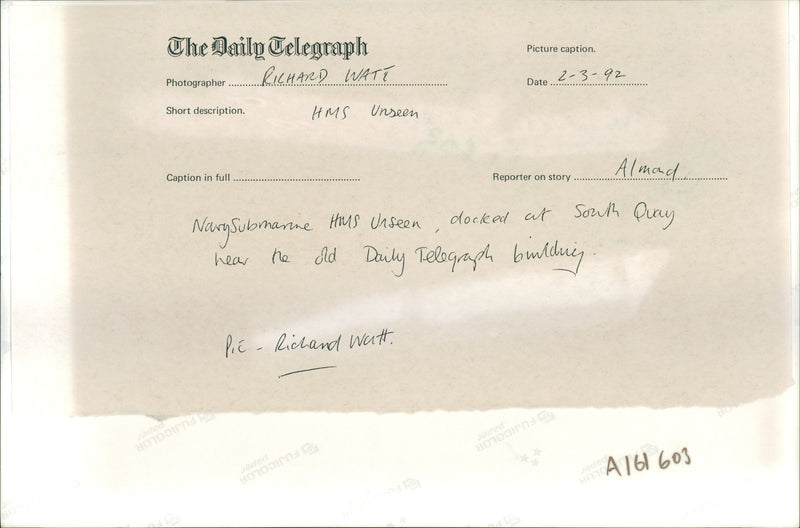 The Daily Telegraph
Picture caption.
Photographer RICHARD WATT
Date 2-3-92
Short description. HMS Unseen
Caption in full
Reporter on story Almond
Navy Submarine HMS Unseen, docked at South Quay
near the old Daily Telegraph building.
Pic - Richard Watt.
FUJICOLOR
paper
FUJICOLOR
paper
FUJICOLOR
paper
FUJICOLOR
A161603